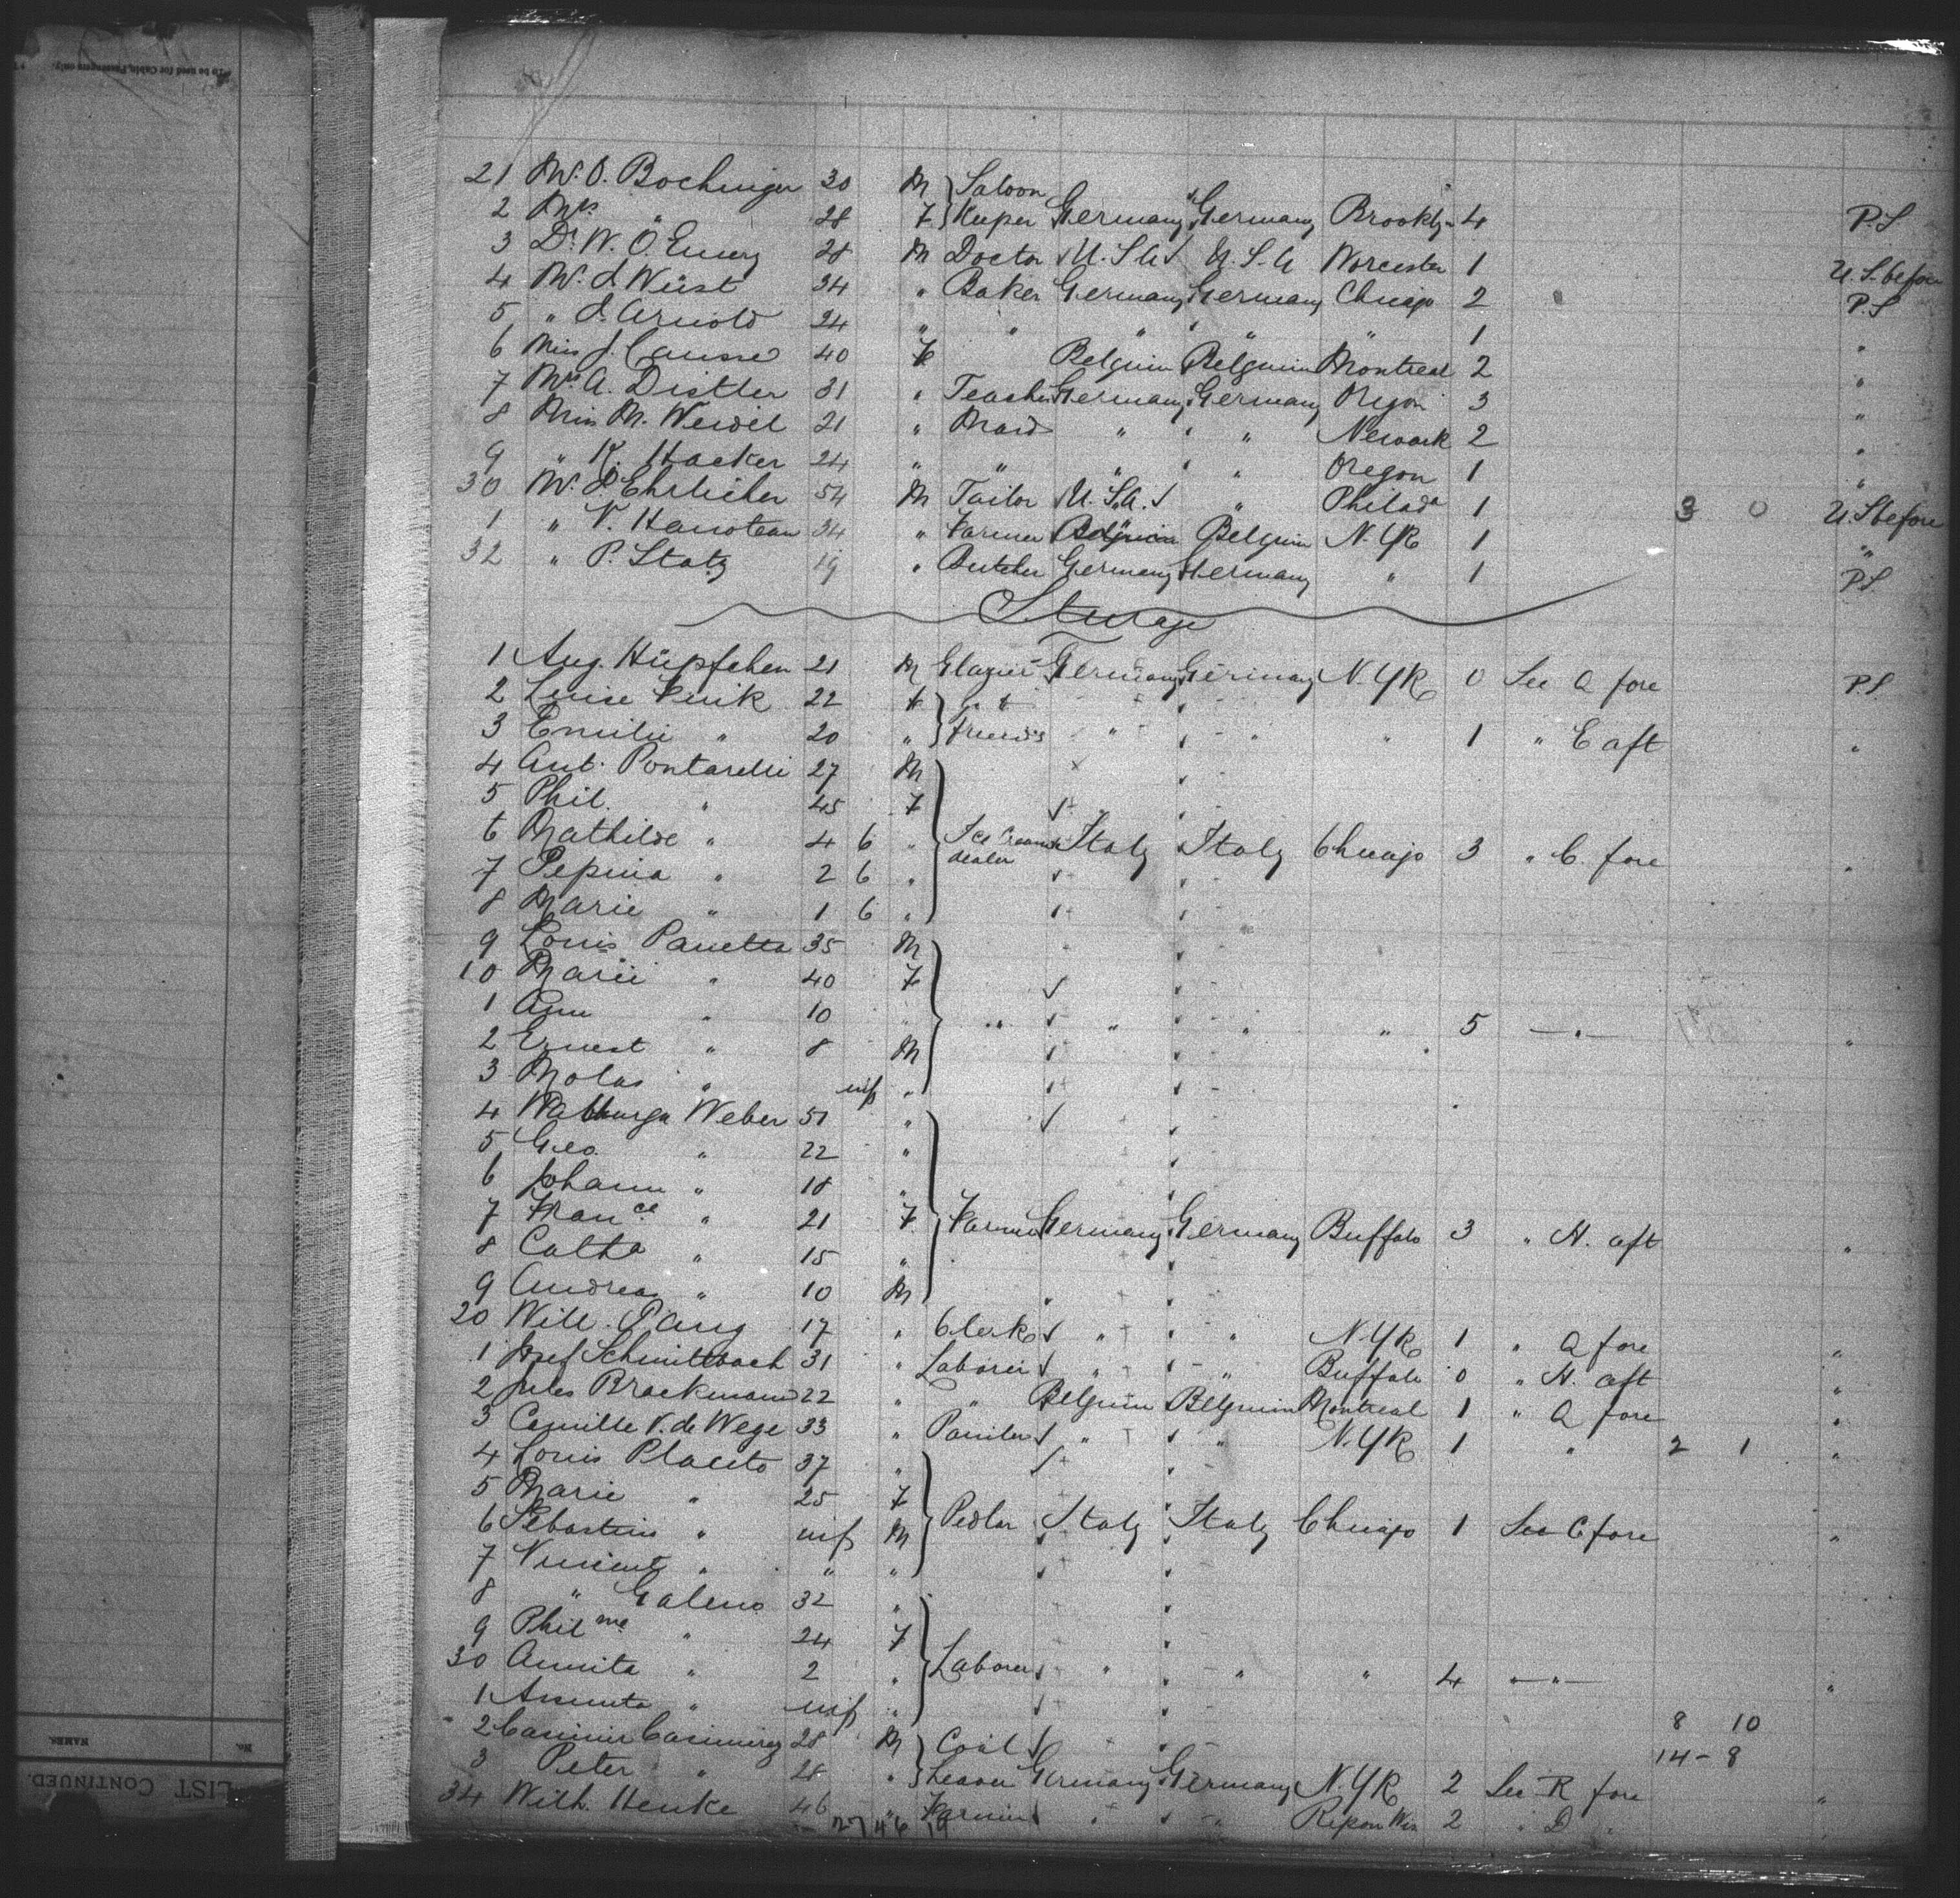 21 Mr. O. Bochinger 30 M Saloon
2 Mrs " 28 F Keeper Germany Germany Brooklyn 4 P.S
3 Dr. W. O. Emery 28 M Doctor U.S.A U.S.A Worcester 1 U.S. before
4 Mr. J. Wüst 34 " Baker Germany Germany Chicago 2 P.S
5 " J. Arnold 24 " " " " " 1 "
6 Miss J. Causse 40 F Belgium Belgium Montreal 2 "
7 Mrs A. Distler 31 " Teacher Germany Germany Oregon 3 "
8 Miss M. Weidel 21 " Maid " " Newark 2 "
9 " K. Hacker 24 " " " " Oregon 1 "
30 Mr. J. Ehrlicher 54 M Tailor U.S.A. " Philada 1 3 0 U.S before
1 " V. Hanoteau 34 " Farmer Belgium Belgium N.YK 1 "
32 " P. Statz 19 " Butcher Germany Germany " 1 P.S
Steerage
1 Aug. Hüpfchen 21 M Glazier Germany Germany N.YK 0 Sec A fore P.S
2 Louise Funk 22 F
3 Emilie " 20 " friends " " " 1 " E aft "
4 Ant. Pontarelli 27 M
5 Phil. " 45 F
6 Mathilde " 4 6 " Ice Cream dealer Italy Italy Chicago 3 " C. fore "
7 Pepina " 2 6 "
8 Marie " 1 6 "
9 Louis Panetta 35 M
10 Marie " 40 F
1 Ann " 10 " " " " " 5 — " — "
2 Ernest " 8 M
3 Molas " inf "
4 Walburga Weber 51 "
5 Geo. " 22 "
6 Johann " 18 "
7 France " 21 F Farmer Germany Germany Buffalo 3 " H. aft "
8 Catha " 15 "
9 Andreas " 10 M
20 Will. Pang 17 " Clerk " " N.YK 1 " A fore "
1 Josef Schmittbach 31 " Laborer " " Buffalo 0 " H. aft "
2 Jules Brackmann 22 " " Belgium Belgium Montreal 1 " A fore "
3 Camille V. de Wege 33 " Painter " " N.YK 1 " 2 1 "
4 Louis Placito 37 "
5 Marie " 25 F
6 Sebastian " inf M Pedlar Italy Italy Chicago 1 Sec C fore "
7 Vincent " " "
8 " Galeno 32 "
9 Philme " 24 F
30 Annita " 2 " Laborer " " " 4 — " — "
1 Assunta " inf " 8 10
2 Casimir Casimirez 28 M Coal 14 - 8
3 Peter " 28 " heaver Germany Germany N.YK 2 Sec R fore "
34 Wilh. Henke 46 " Farmer " " Ripon Wis 2 " D "
27 46 19
To be used for Cabin Passengers only.
No. NAMES.
LIST CONTINUED.